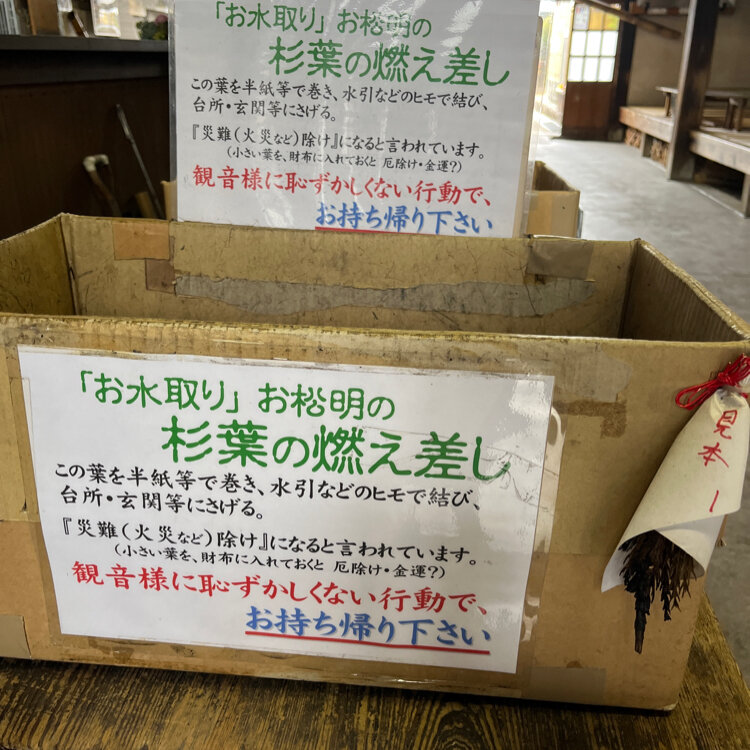 「お水取り」お松明の
杉葉の燃え差し
この葉を半紙等で巻き、水引などのヒモで結び、
台所・玄関等にさげる。
『災難(火災など)除け』になると言われています。
(小さい葉を、財布に入れておくと 厄除け・金運?)
観音様に恥ずかしくない行動で、
お持ち帰り下さい
「お水取り」お松明の
杉葉の燃え差し
この葉を半紙等で巻き、水引などのヒモで結び、
台所・玄関等にさげる。
『災難(火災など)除け』になると言われています。
(小さい葉を、財布に入れておくと 厄除け・金運?)
観音様に恥ずかしくない行動で、
お持ち帰り下さい
見本